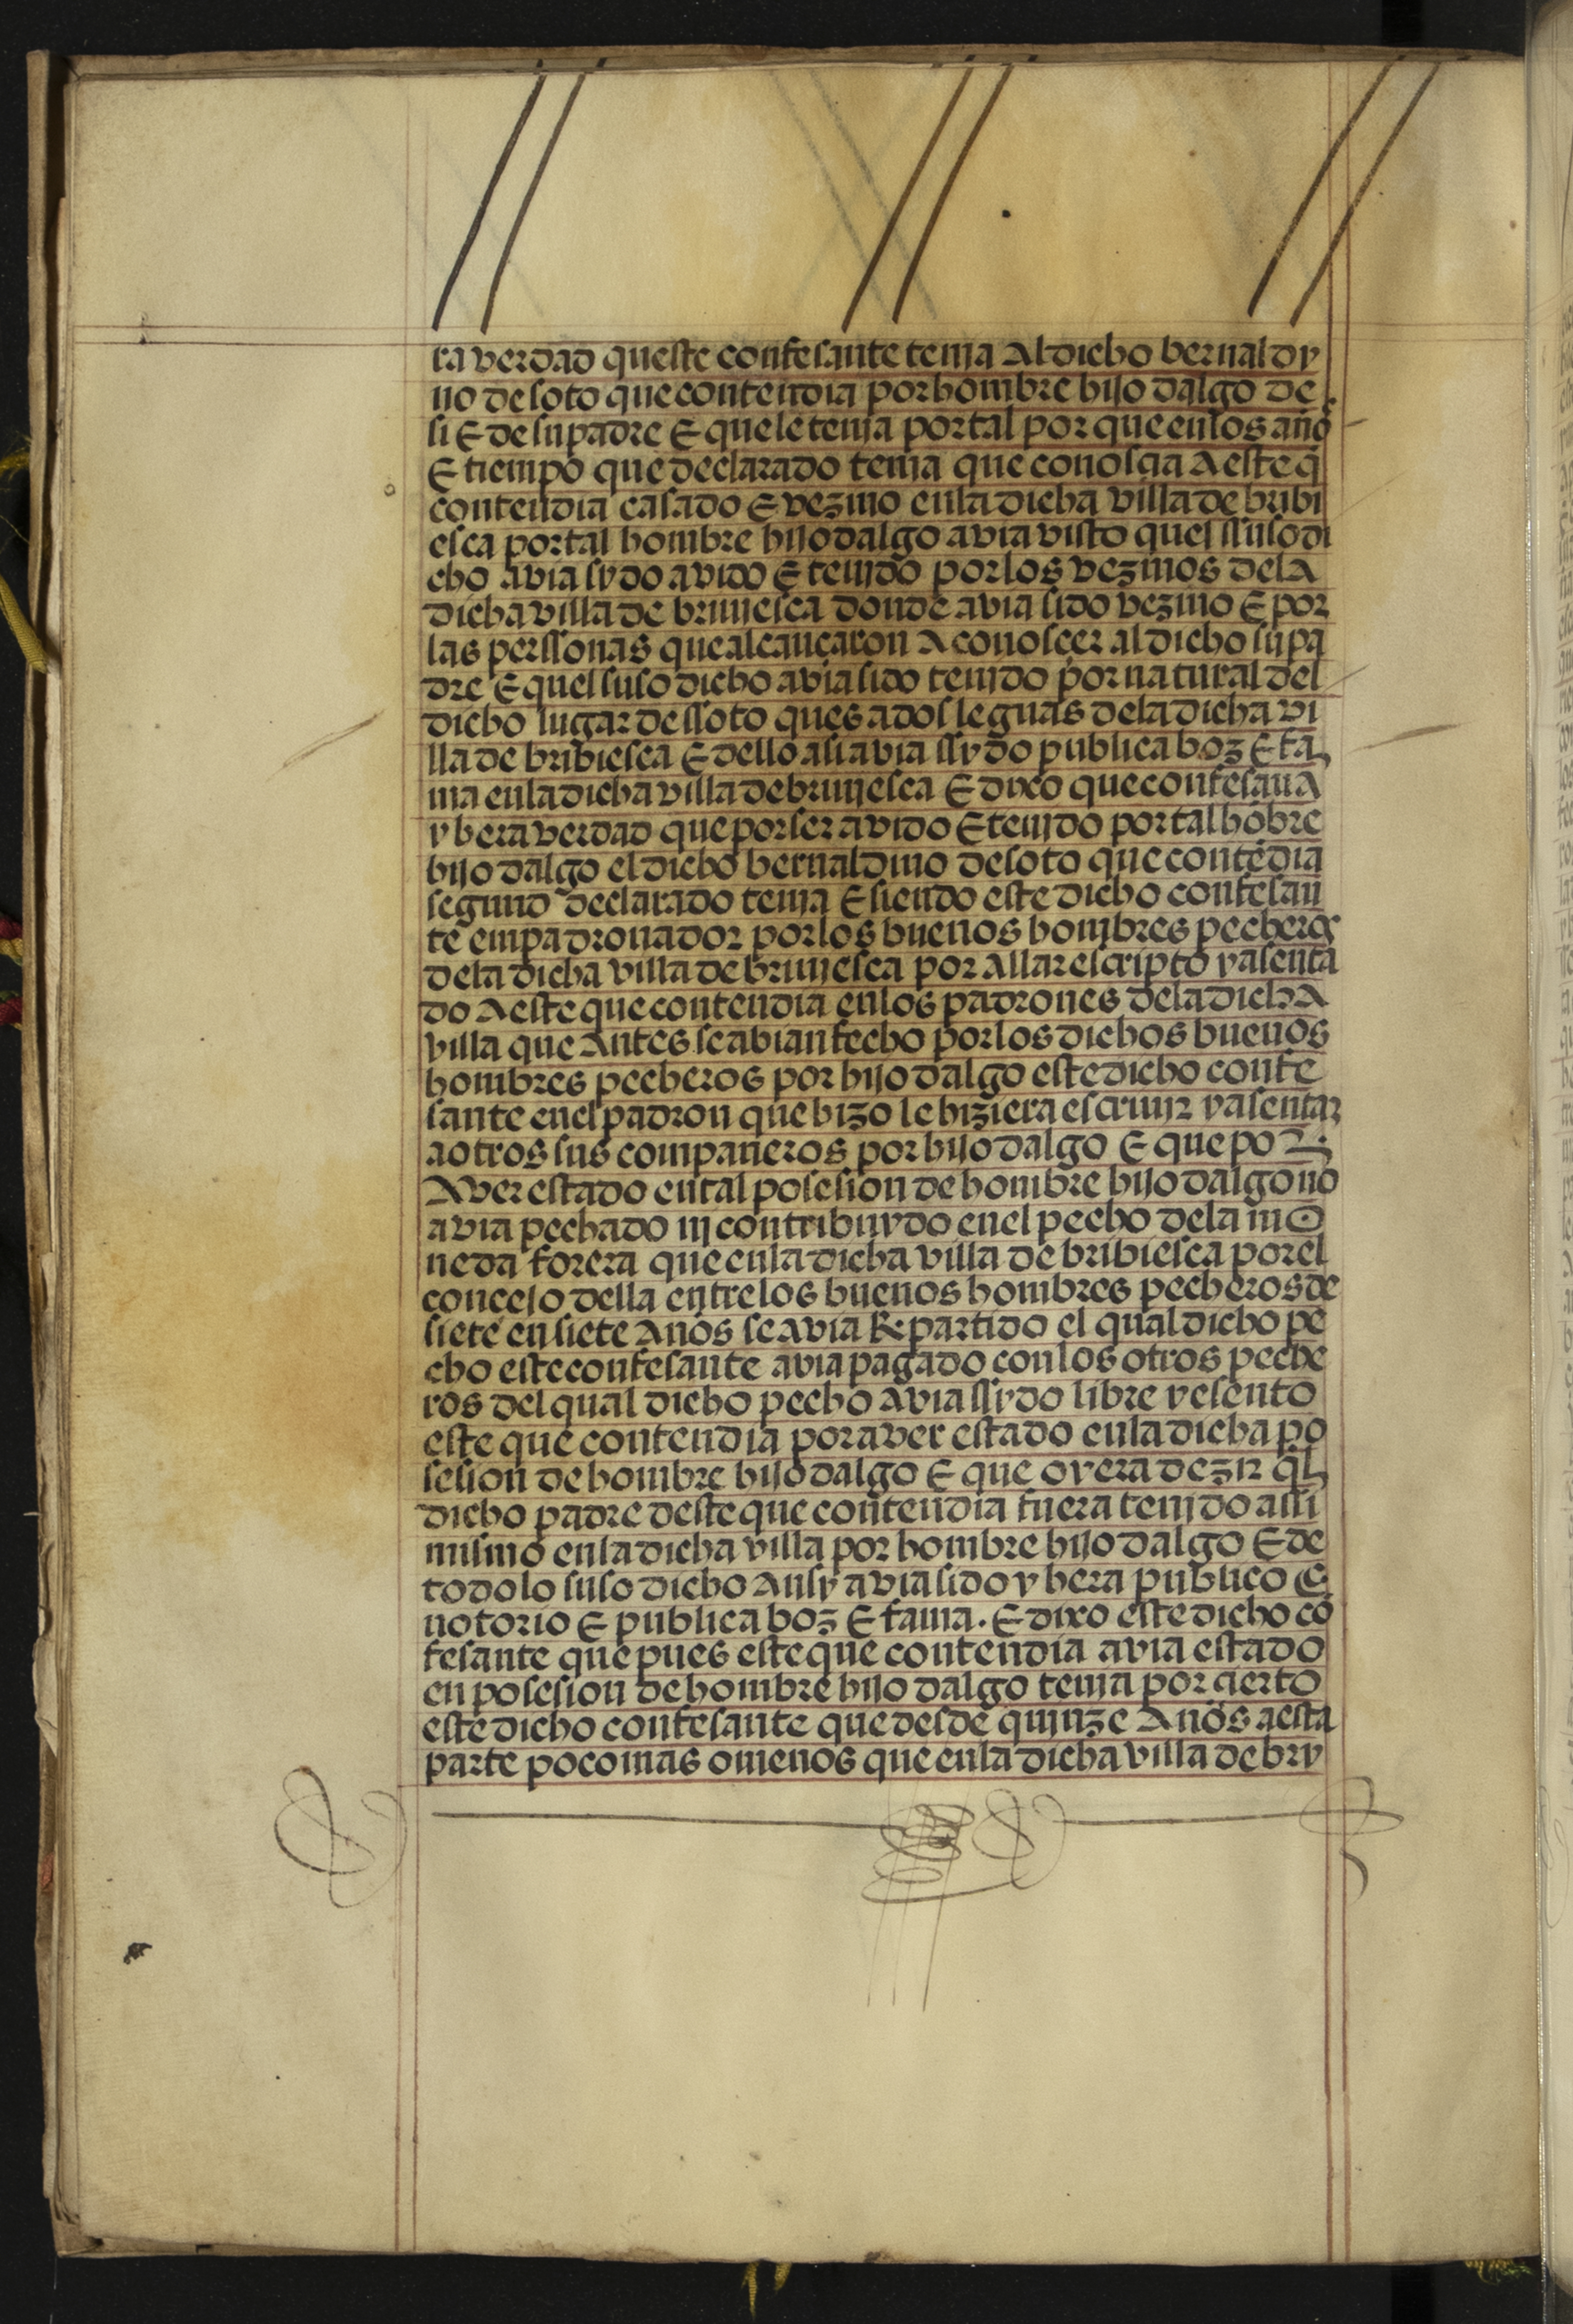 ra verdad queste confesante tenja Al dicho bernaldy
no de soto que contendia por hombre hijo dalgo de
si E de su padre E que le tenja por tal por que en los año
E tiempo que declarado tenia que conoscia A este q̃
contendia casado E vezino en la dicha villa de bribi
esca por tal hombre hijo dalgo avia visto quel ssusodi
cho avia sydo avido E tenjdo por los vezinos de la
dicha villa de brivjesca donde avia sido vezino E por
las perssonas que alcançaron A conoscer al dicho su pa
dre E quel suso dicho avia sido tenjdo por natural del
dicho lugar de ssoto ques a dos leguas de la dicha vi
lla de bribiesca E dello asi avia ssydo publica boz E fa
ma en la dicha villa de brivjesca E dixo que confesaua
y hera verdad que por ser avido E tenjdo por tal hōbre
hijo dalgo el dicho bernaldino de soto que contēdia
segund declarado tenja E siendo este dicho confesan
te empadronador por los buenos hombres pecheros
de la dicha villa de brivjesca por Allar escripto y asenta
do A este que contendia en los padrones de la dicha
villa que Antes se abian fecho por los dichos buenos
hombres pecheros por hijo dalgo este dicho confe
sante en el padron que hizo le hiziera escriuir y asentar
a otros sus compañeros por hijo dalgo E que por
Aver estado en tal posesion de hombre hijo dalgo no
avia pechado nj contribuydo en el pecho de la mo
neda forera que en la dicha villa de bribiesca por el
concejo della entre los buenos hombres pecheros de
siete en siete Años se avia Repartido el qual dicho pe
cho este confesante avia pagado con los otros peche
ros del qual dicho pecho avia ssydo libre y esento
este que contendia por aver estado en la dicha po
sesion de hombre hijo dalgo E que oyera dezir q̃l
dicho padre deste que contendia fuera tenjdo assi
mismo en la dicha villa por hombre hijo dalgo E de
todo lo suso dicho Ansy avia sido y hera publico E
notorio E publica boz E fama. E dixo este dicho cō
fesante que pues este que contendia avia estado
en posesion de hombre hijo dalgo tenja por cierto
este dicho confesante que desde qujnze Años a esta
parte poco mas o menos que en la dicha villa de bry